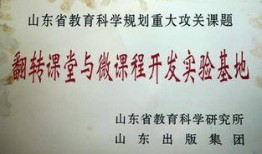 山东省教育科学规划重大攻关课题
翻转课堂与微课程开发实验基地
山东省教育科学研究所
山东出版集团